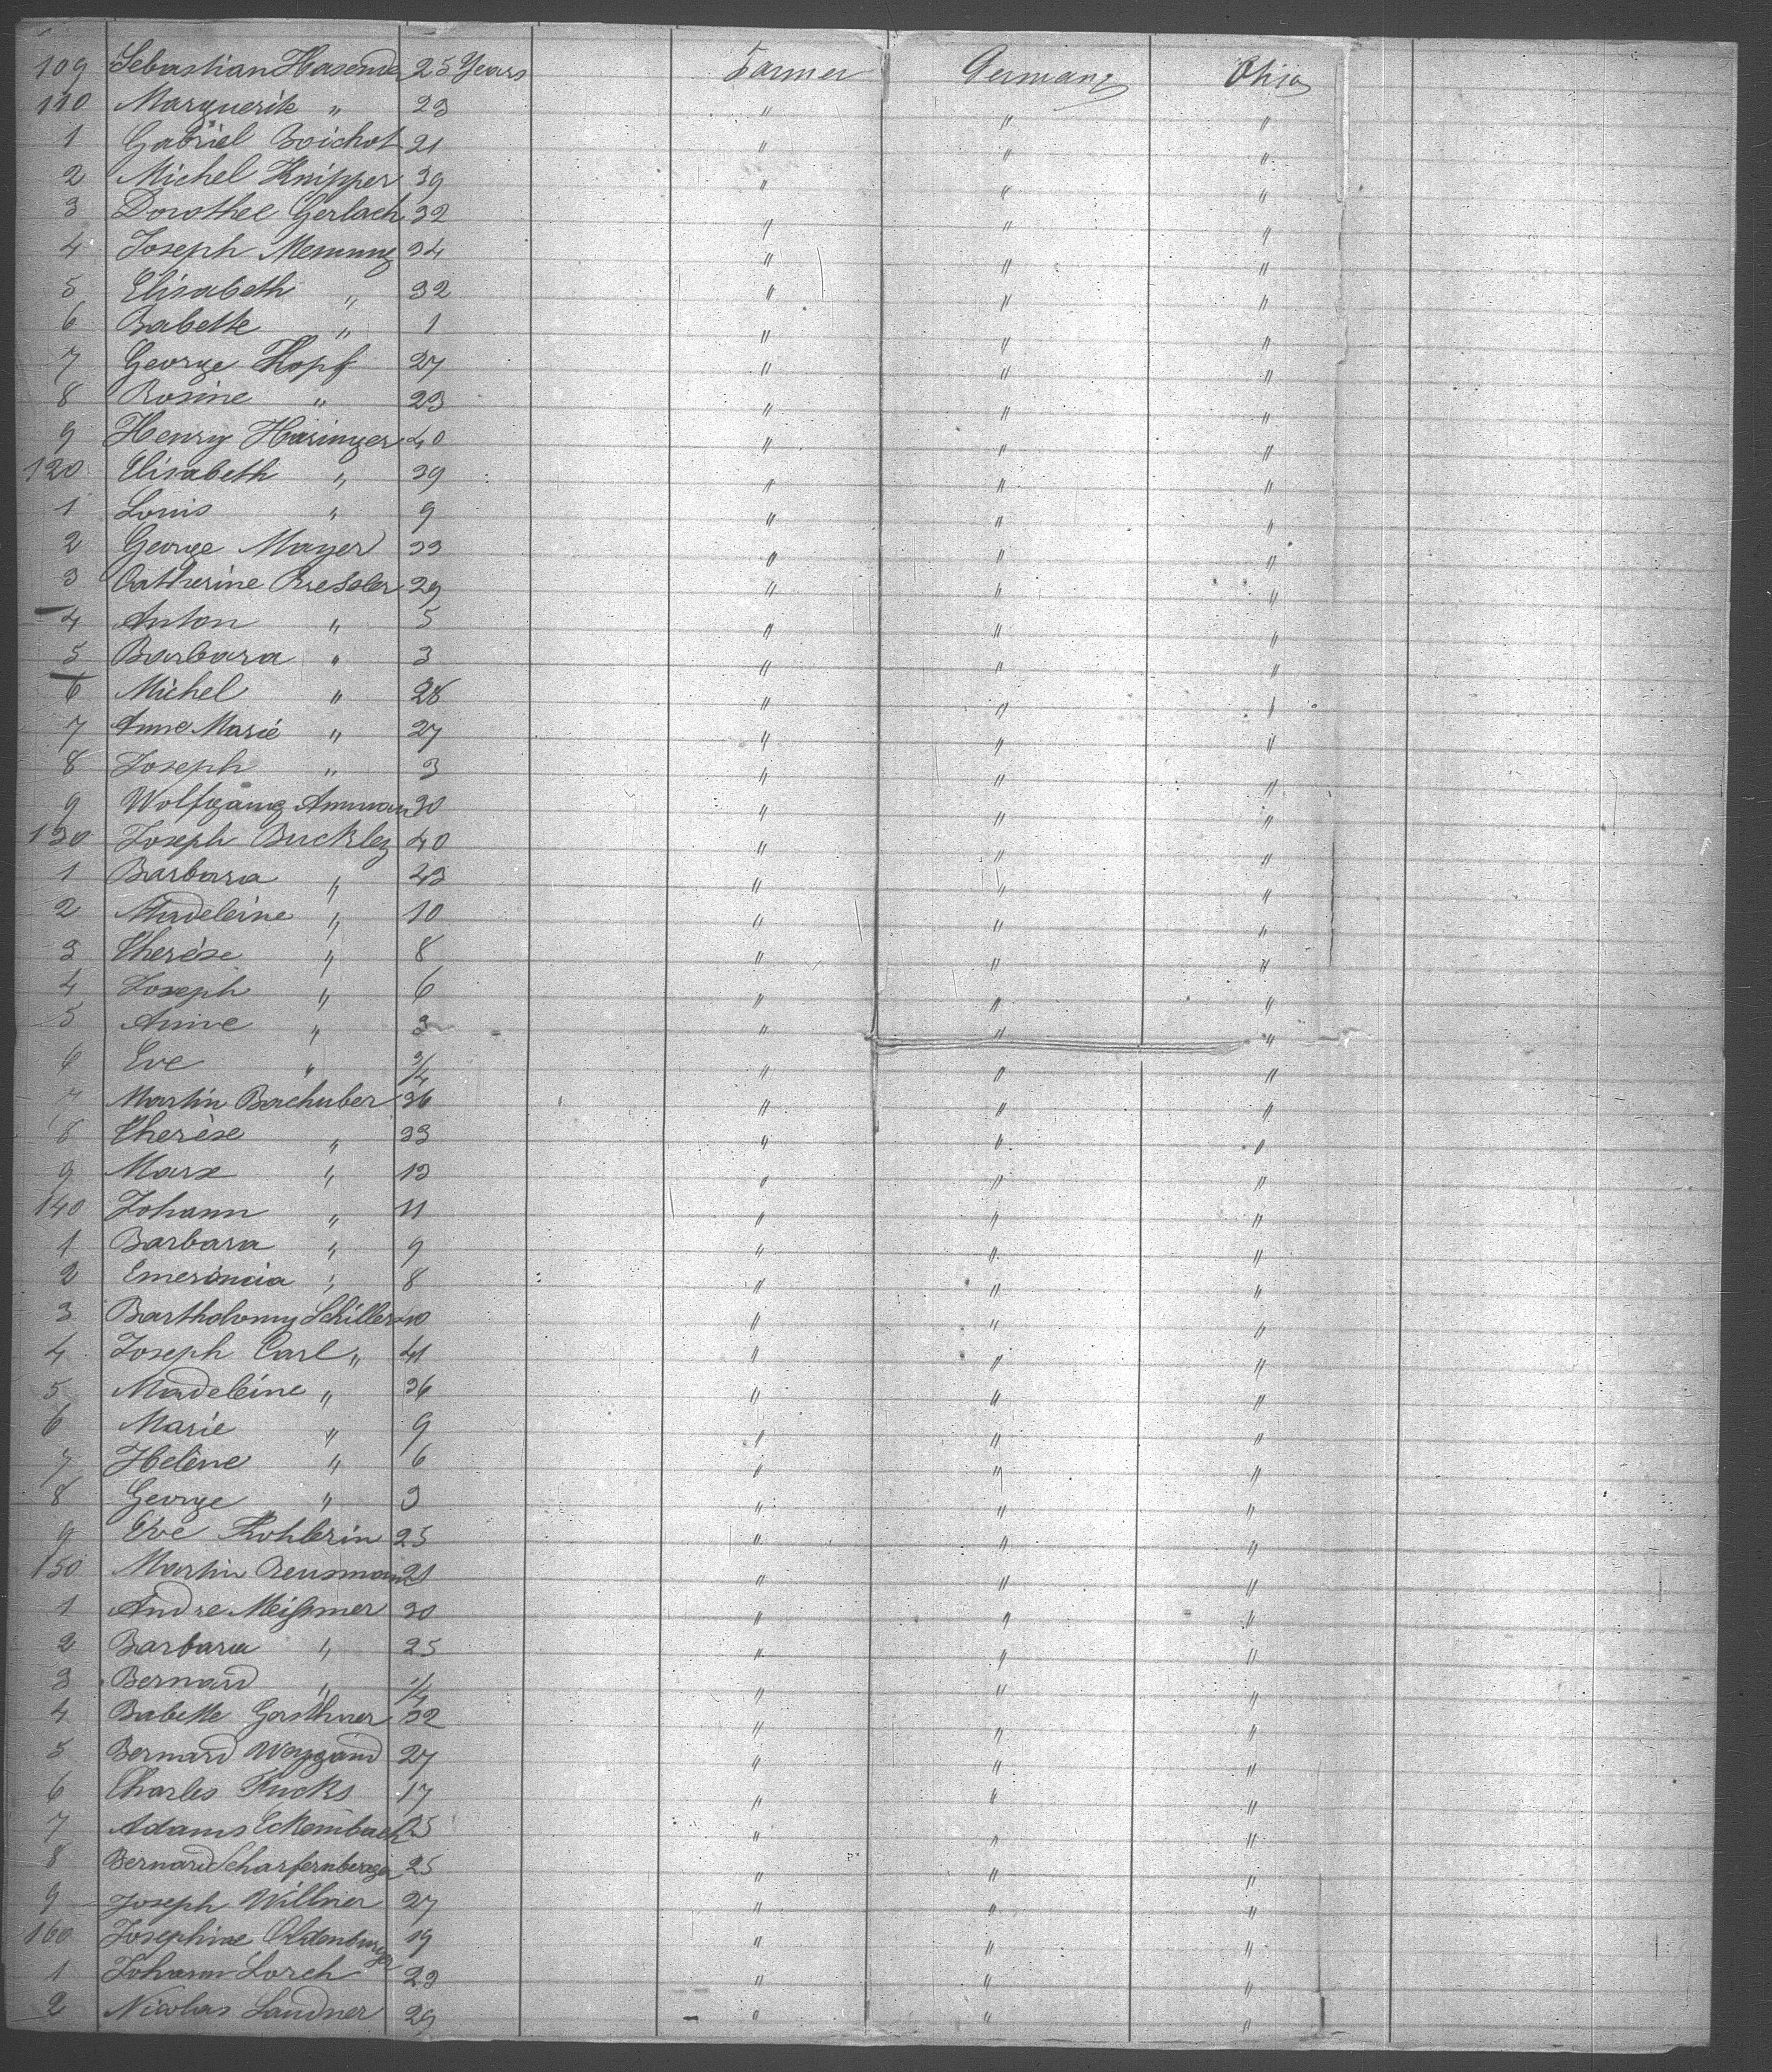 109 Sebastian Hasend 25 Years Farmer Germany Ohio
110 Marguerite " 23 " " "
1 Gabriel Boichot 21 " " "
2 Michel Knipper 39 " " "
3 Dorothee Gerlach 32 " " "
4 Joseph 34 " " "
5 Elisabeth " 32 " " "
6 Babette " 1 " " "
7 George Hopf 27 " " "
8 Rosine " 23 " " "
9 Henry Häringer 40 " " "
120 Elisabeth " 39 " " "
1 Louis " 9 " " "
2 George Mayer 33 " " "
3 Catherine 29 " " "
4 Anton " 5 " " "
5 Barbara " 3 " " "
6 Michel " 28 " " "
7 Anne Marie " 27 " " "
8 Joseph " 3 " " "
9 Wolfgang Amman 30 " " "
130 Joseph Buckley 40 " " "
1 Barbara " 43 " " "
2 Madeleine " 10 " " "
3 Therèse " 8 " " "
4 Joseph " 6 " " "
5 Anne " 3 " " "
6 Eve " 3/4 " " "
7 Martin Bachuber 36 " " "
8 Therèse " 33 " " "
9 Marx " 13 " " "
140 Johann " 11 " " "
1 Barbara " 9 " " "
2 Emerancia " 8 " " "
3 Bartholomy Schiller 40 " " "
4 Joseph Carl " 41 " " "
5 Madeleine " 36 " " "
6 Marie " 9 " " "
7 Helène " 6 " " "
8 George " 3 " " "
9 Eve Kohlerin 25 " " "
150 Martin 21 " " "
1 Andre Meißmer 30 " " "
2 Barbara " 25 " " "
3 Bernard " 1/4 " " "
4 Babette Gasthuer 32 " " "
5 Bernard Weygand 27 " " "
6 Charles Fucks 17 " " "
7 Adams Eckembach 25 " " "
8 Bernard Scharfernberger 25 " " "
9 Joseph Willner 27 " " "
160 Josephine Oldenburger 19 " " "
1 Johann Lorch 23 " " "
2 Nicolas Landner 29 " " "